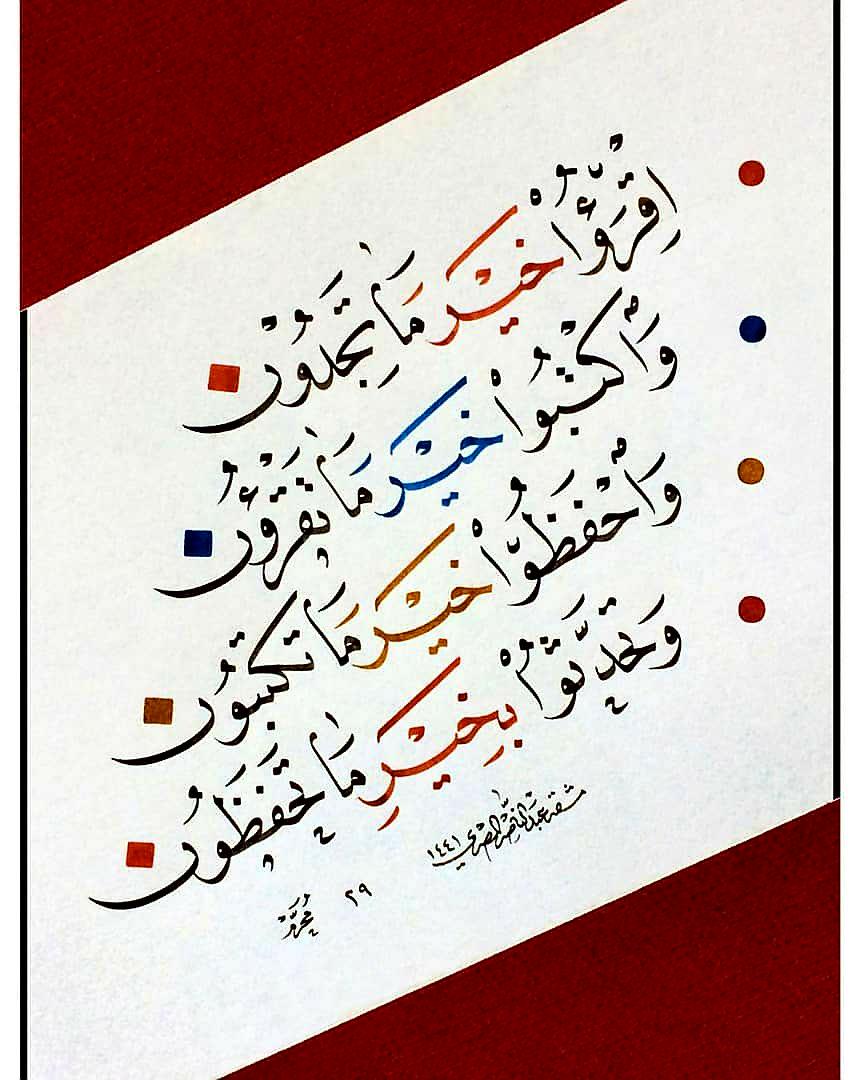 اِقْرَؤُا خَيْرَ مَا تَجِدُوْنَ
وَاكْتُبُوْا خَيْرَ مَا تَقْرَؤُنَ
وَاحْفَظُوْا خَيْرَ مَا تَكْتُبُوْنَ
وَتَحَدَّثُوْا بِخَيْرِ مَا تَحْفَظُوْنَ
مشقه عبدالناصر المصري ١٤٤١
٢٩ محرّم